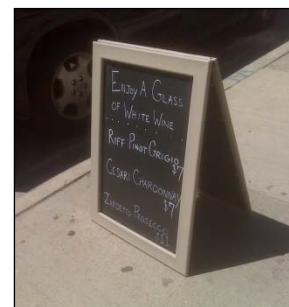 ENJOY A GLASS
OF WHITE WINE
RIFF PINOT GRIGIO
$7
CESARI CHARDONNAY
$7
ZARDETTO PROSECCO